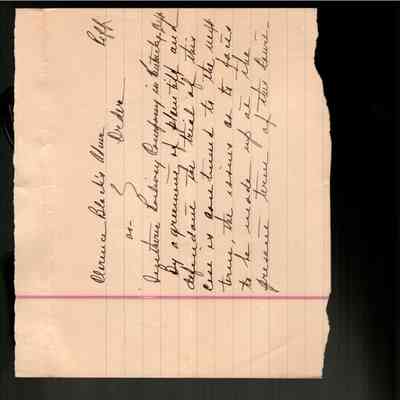 Clarence Black's Admr Plff
vs- Order
Southern Railway Company in Kentucky, Deft
By agreement of plaintiff and
defendant the trial of this
case is continued to the next
term, the issues as to facts
to be made up at the
present term of this Court-